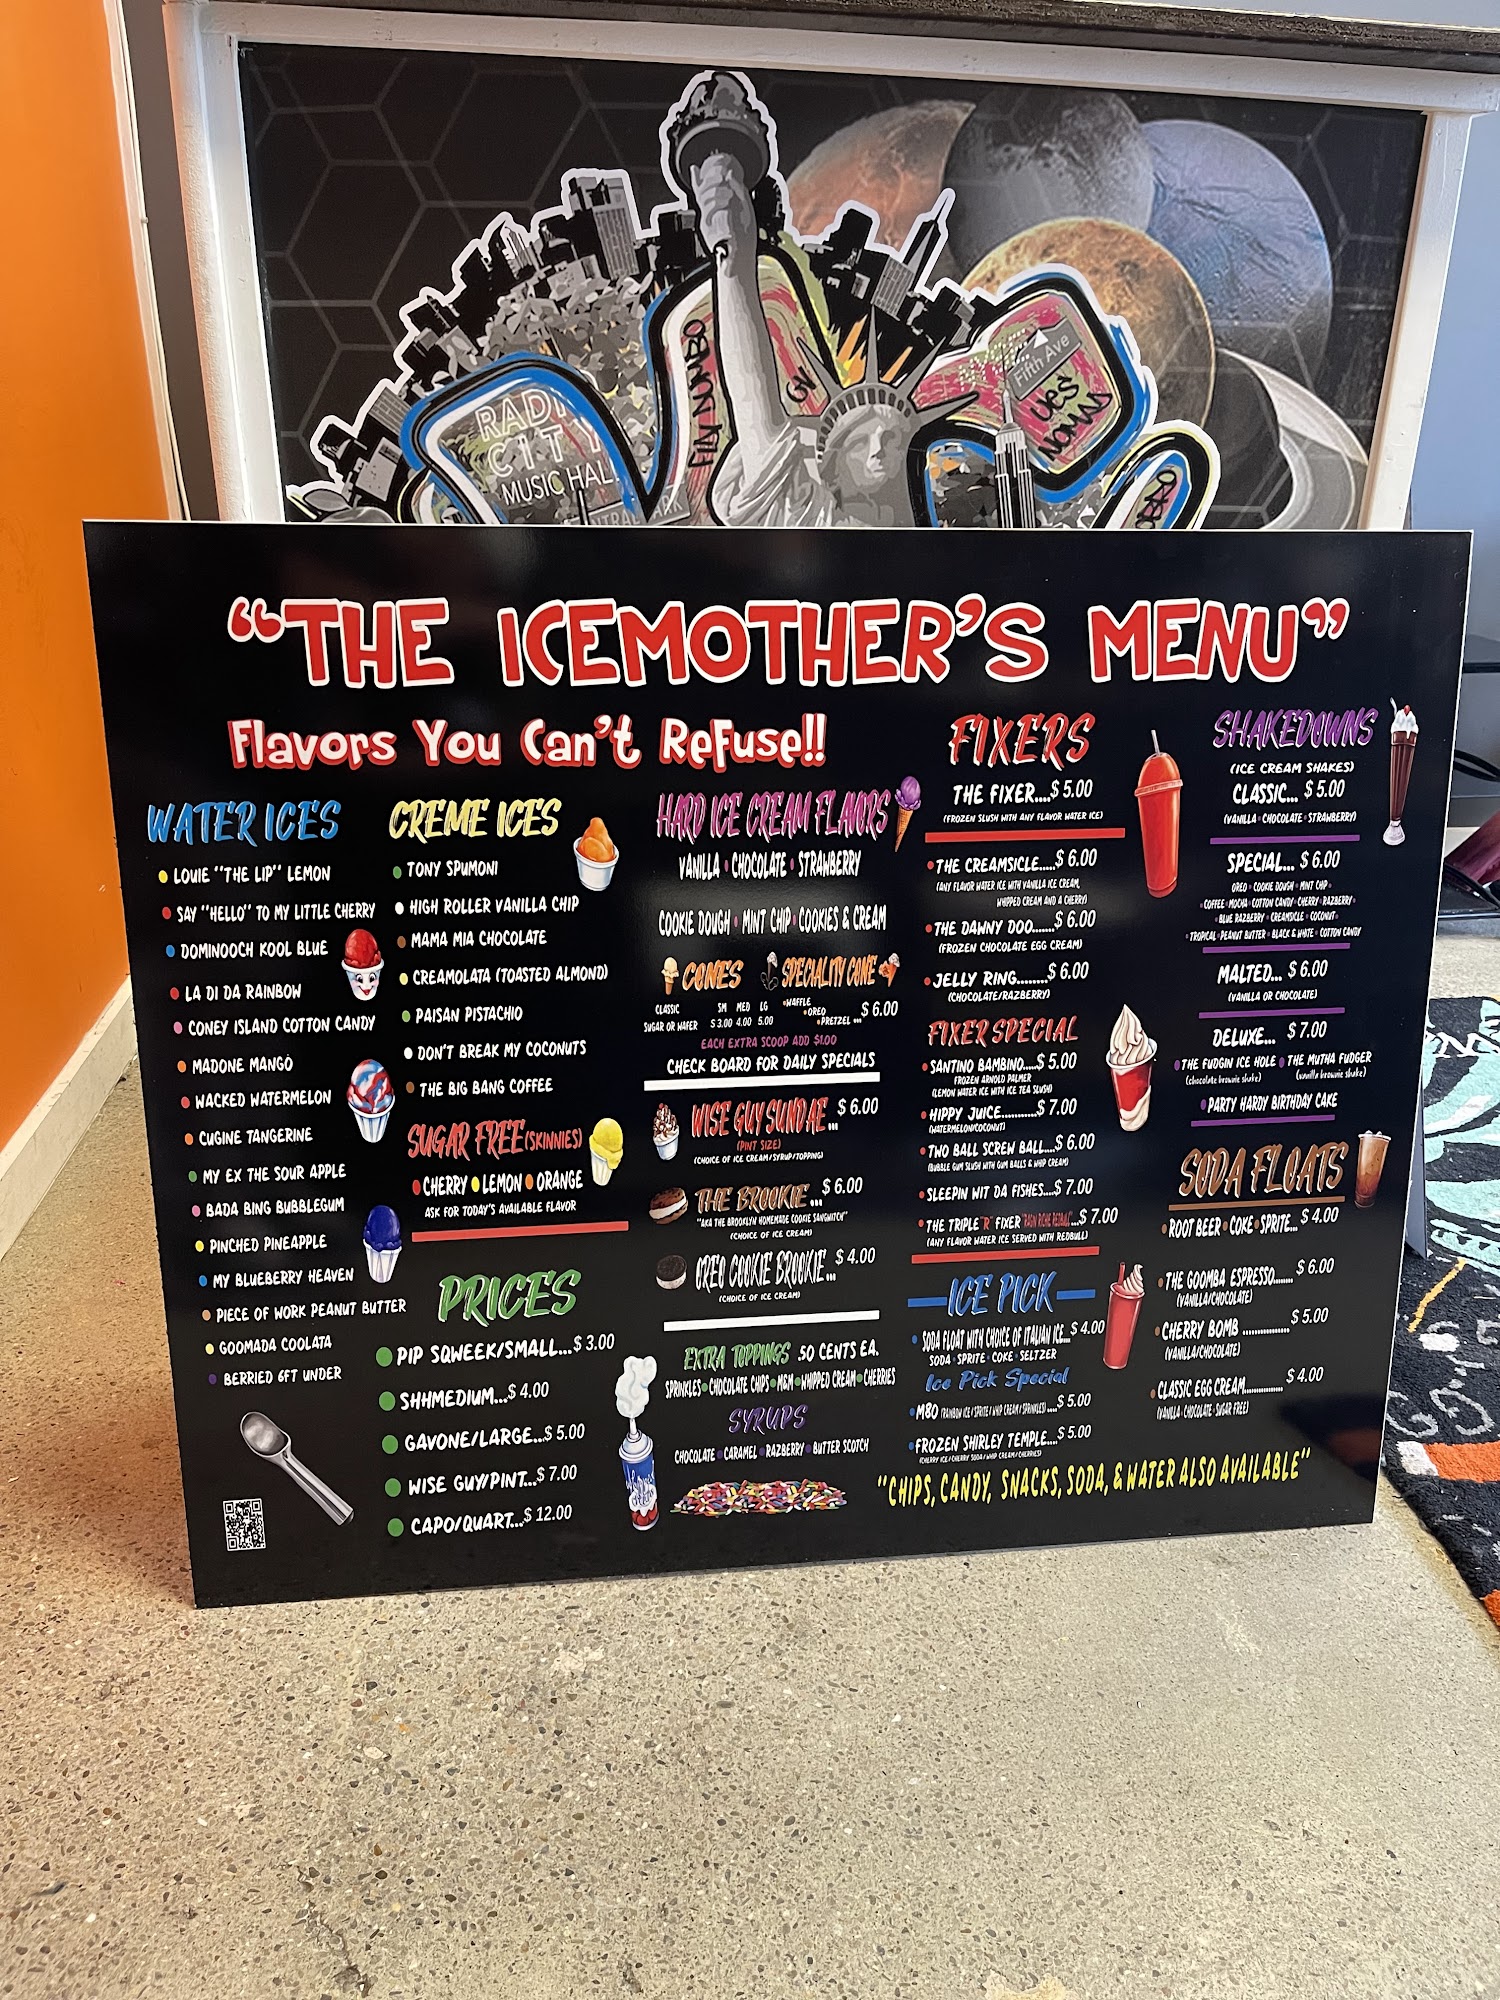 RADIO
CITY
MUSIC HALL
Fifth Ave
"THE ICEMOTHER'S MENU"
Flavors You Can't Refuse!!
WATER ICES
LOUIE "THE LIP" LEMON
SAY "HELLO" TO MY LITTLE CHERRY
DOMINOOCH KOOL BLUE
LA DI DA RAINBOW
CONEY ISLAND COTTON CANDY
MADONE MANGO
WACKED WATERMELON
CUGINE TANGERINE
MY EX THE SOUR APPLE
BADA BING BUBBLEGUM
PINCHED PINEAPPLE
MY BLUEBERRY HEAVEN
PIECE OF WORK PEANUT BUTTER
GOOMADA COOLATA
BERRIED 6FT UNDER
CREME ICES
TONY SPUMONI
HIGH ROLLER VANILLA CHIP
MAMA MIA CHOCOLATE
CREAMOLATA (TOASTED ALMOND)
PAISAN PISTACHIO
DON'T BREAK MY COCONUTS
THE BIG BANG COFFEE
SUGAR FREE (SKINNIES)
CHERRY LEMON ORANGE
ASK FOR TODAY'S AVAILABLE FLAVOR
PRICES
PIP SQWEEK/SMALL...$ 3.00
SHHMEDIUM...$ 4.00
GAVONE/LARGE...$ 5.00
WISE GUY/PINT...$ 7.00
CAPO/QUART...$ 12.00
HARD ICE CREAM FLAVORS
VANILLA • CHOCOLATE • STRAWBERRY
COOKIE DOUGH • MINT CHIP • COOKIES & CREAM
CONES
CLASSIC SM MED LG
SUGAR OR WAFER $ 3.00 4.00 5.00
SPECIALITY CONE
•WAFFLE
•OREO
•PRETZEL ...$ 6.00
EACH EXTRA SCOOP ADD $1.00
CHECK BOARD FOR DAILY SPECIALS
WISE GUY SUNDAE...$ 6.00
(PINT SIZE)
(CHOICE OF ICE CREAM/SYRUP/TOPPING)
THE BROOKIE...$ 6.00
"AKA THE BROOKLYN HOMEMADE COOKIE SANGWITCH"
(CHOICE OF ICE CREAM)
OREO COOKIE BROOKIE...$ 4.00
(CHOICE OF ICE CREAM)
EXTRA TOPPINGS .50 CENTS EA.
SPRINKLES • CHOCOLATE CHIPS • M&M • WHIPPED CREAM • CHERRIES
SYRUPS
CHOCOLATE • CARAMEL • RAZBERRY • BUTTER SCOTCH
FIXERS
THE FIXER....$ 5.00
(FROZEN SLUSH WITH ANY FLAVOR WATER ICE)
THE CREAMSICLE.....$ 6.00
(ANY FLAVOR WATER ICE WITH VANILLA ICE CREAM,
WHIPPED CREAM AND A CHERRY)
THE DAWNY DOO.......$ 6.00
(FROZEN CHOCOLATE EGG CREAM)
JELLY RING.........$ 6.00
(CHOCOLATE/RAZBERRY)
FIXER SPECIAL
SANTINO BAMBINO.....$ 5.00
FROZEN ARNOLD PALMER
(LEMON WATER ICE WITH ICE TEA SLUSH)
HIPPY JUICE...........$ 7.00
(WATERMELON/COCONUT)
TWO BALL SCREW BALL....$ 6.00
(BUBBLE GUM SLUSH WITH GUM BALLS & WHIP CREAM)
SLEEPIN WIT DA FISHES....$ 7.00
THE TRIPLE "R" FIXER ...$ 7.00
(ANY FLAVOR WATER ICE SERVED WITH REDBULL)
ICE PICK
SODA FLOAT WITH CHOICE OF ITALIAN ICE...$ 4.00
SODA • SPRITE • COKE • SELTZER
Ice Pick Special
M80 (RAINBOW ICE/SPRITE/WHIP CREAM/SPRINKLES)....$ 5.00
FROZEN SHIRLEY TEMPLE....$ 5.00
(CHERRY ICE/CHERRY SODA/WHIP CREAM/CHERRIES)
SHAKEDOWNS
(ICE CREAM SHAKES)
CLASSIC... $ 5.00
(VANILLA • CHOCOLATE • STRAWBERRY)
SPECIAL... $ 6.00
OREO • COOKIE DOUGH • MINT CHIP •
• COFFEE • MOCHA • COTTON CANDY • CHERRY • RAZBERRY •
• BLUE RAZBERRY • CREAMSICLE • COCONUT •
• TROPICAL • PEANUT BUTTER • BLACK & WHITE • COTTON CANDY
MALTED... $ 6.00
(VANILLA OR CHOCOLATE)
DELUXE... $ 7.00
THE FUDGIN ICE HOLE • THE MUTHA FUDGER
(chocolate brownie shake) (vanilla brownie shake)
PARTY HARDY BIRTHDAY CAKE
SODA FLOATS
ROOT BEER • COKE • SPRITE... $ 4.00
THE GOOMBA ESPRESSO....... $ 6.00
(VANILLA/CHOCOLATE)
CHERRY BOMB ................ $ 5.00
(VANILLA/CHOCOLATE)
CLASSIC EGG CREAM............... $ 4.00
(VANILLA • CHOCOLATE • SUGAR FREE)
"CHIPS, CANDY, SNACKS, SODA, & WATER ALSO AVAILABLE"